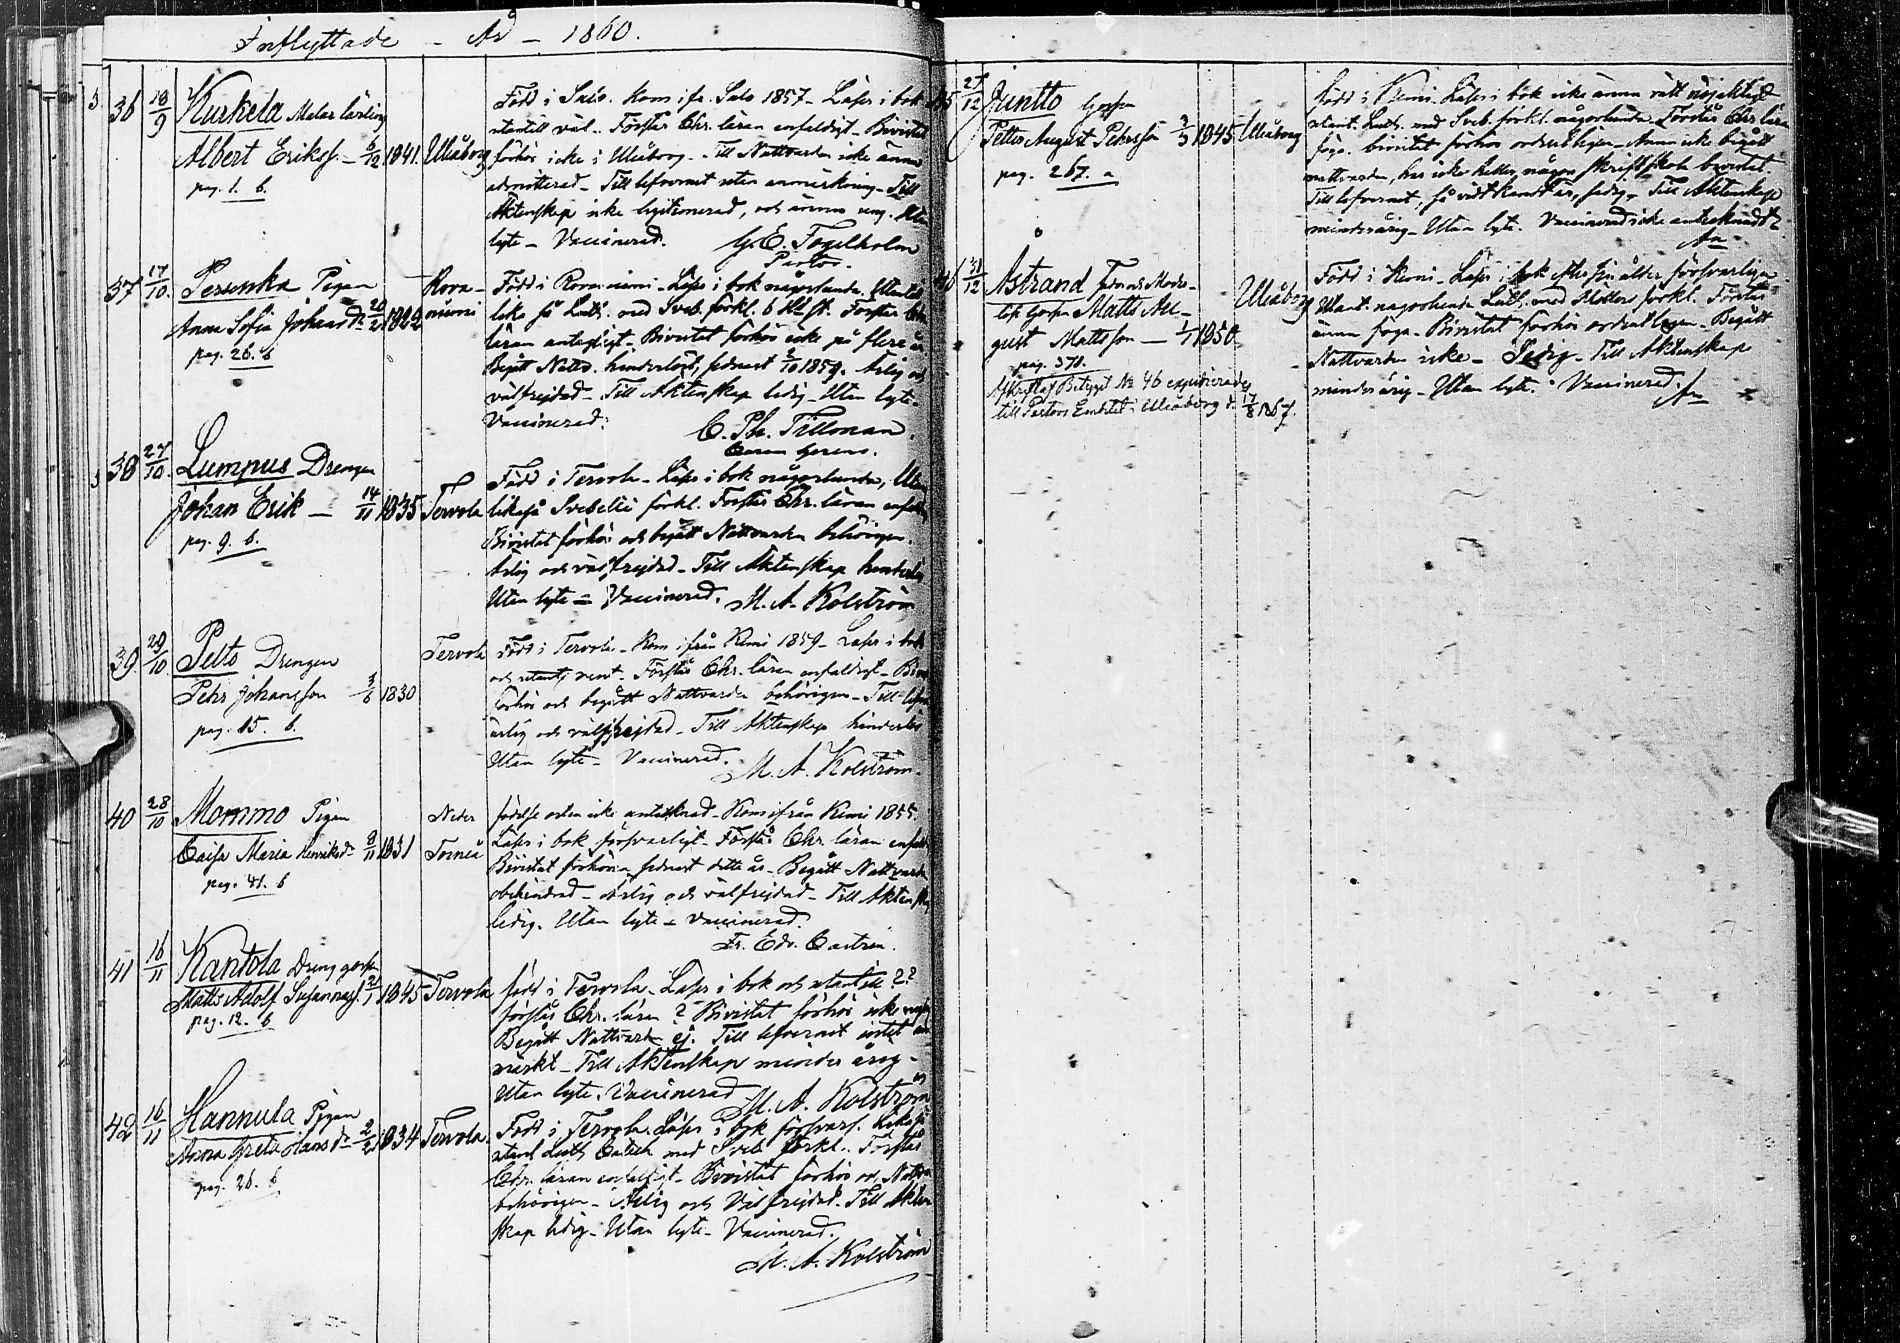 Inflyttade – År – 1860.
36 18/9 Kurkela Målar lärling
Albert Erikss. – 6/12 1841. Uleåborg
pag. 1. b.
Född i Salo. Kom ifr. Salo 1857 – Läser i bok
utantill väl. Förstår Chr. läran enfaldigt – Bivistat
förhör icke i Uleåborg – Till Nattvarden icke ännu
admitterad – Till lefvernet utan anmärkning – Till
Äktenskap icke legitimerad, och ännu ung. Utan
lyte – Vaccinerad. G. E. Fogelholm
Pastor.
37 17/10. Persenka Pigan
Anna Sofia Johansdr 20/2 1822 Rova-
niemi
pag. 26. b
Född i Rovaniemi – Läser i bok någorlunda. Utantill
lika så Luth. med Sveb. förkl. 6 H. st. Förstår Chr.
läran antagligt – Bivistat förhör icke på flere år
Begått Nattv. hinderlöst, sednast /10 1859. Ärlig och
välfrejdad – Till Äktenskap ledig – Utan lyte –
Vaccinerad. C. Ph. Tillman.
Curam Gerens.
38 27/10. Lumpus Drengen
Johan Erik – 14/11 1835 Tervola
pag. 9. b.
Född i Tervola – Läser i bok någorlunda, Utan
likaså Svebelii förkl. Förstår Chr. läran enfald.
Bivistat förhör och begått Nattvarden behörigen.
Ärlig och välfrejdad – Till Äktenskap hinderlös
Utan lyte – Vaccinerad. M. A. Kolström
39. 29/10 Pelto Drengen
Pehr Johansson 3/6 1830 Tervola
pag. 15. b.
Född i Tervola – Kom ifrån Kemi 1859 – Läser i bok
och utant. rent – Förstår Chr. läran enfaldigt – Biv.
förhör och begått Nattvarden behörigen – Till lefv.
ärlig och välfrejdad – Till Äktenskap hinderlös
Utan lyte – Vaccinerad. M. A. Kolström.
40 28/10 Mommo Pigan
Caisa Maria Henriksdr 9/11 1831 Neder
Torneå
pag. 41. b
födelse orten icke antecknad – Kom ifrån Kemi 1855.
Läser i bok försvarligt – Förstår Chr. läran enfald.
Bivistat förhören sednast detta år – Begått Nattvard
obehindrad – ärlig och välfrejdad – Till Äktensk.
ledig. Utan lyte – Vaccinerad.
Fr. Edv. Castrén.
41 16/11 Kantola Dreng gossen
Matts Adolf Susannass. 21/1 1845 Tervola
pag. 12. b
född i Tervola – Läser i bok och utantill ??
förstår Chr. läran ? Bivistat förhör icke
Begått Nattvarden ej. Till lefvernet intet an-
märkt – Till Äktenskap minder årig –
Utan lyte. Vaccinerad M. A. Kolström
42 16/11 Hannula Pigan
Anna Greta Hansdr 2/2 1834 Tervola.
pag. 26. b
Född i Tervola. Läser i bok försvarl. Likaså
utant Luth Catech med Sveb förkl. Förstår
Chr. läran enfaldigt – Bivistat förhör och Nattv.
behörigen – Ärlig och Välfrejdad – Till Äkten
skap ledig – Utan lyte – Vaccinerad.
M. A. Kolström
45 27/12 Juntto Gossen
Petter August Pehrsson 3/3 1845 Uleåborg
pag. 267. a
född i Kemi. Läser i bok icke ännu rätt nöjaktigt
utant. Luth. med Sveb. förkl. någorlunda. Förstår Chr. lära
föga. bivistat förhör ordentligen – Ännu icke begått
nattvarden, har icke heller någon skriftskola bevistat.
Till lefvernet, så vidt kändt är, ledig. Till Äktenskap
minderårig – Utan lyte. Vaccinerad icke antecknadt?
46 31/12 Åstrand
löse Gossen Matts Au-
gust Mattsson – 1/1 1850 Uleåborg
pag. 371.
Afskrift af Betyget No 46 expedierades
till Pastors Embetet i Uleåborg d. 17/8 1867.
Född i Kemi – Läser i bok efter sin ålder försvarligen
Utant. någorlunda Luth. med Möllers förkl. Förstår
ännu föga – Bivistat förhör ordentligen – Begått
Nattvarden icke – Ledig – Till Äktenskap
minderårig – Utan lyte. Vaccinerad.